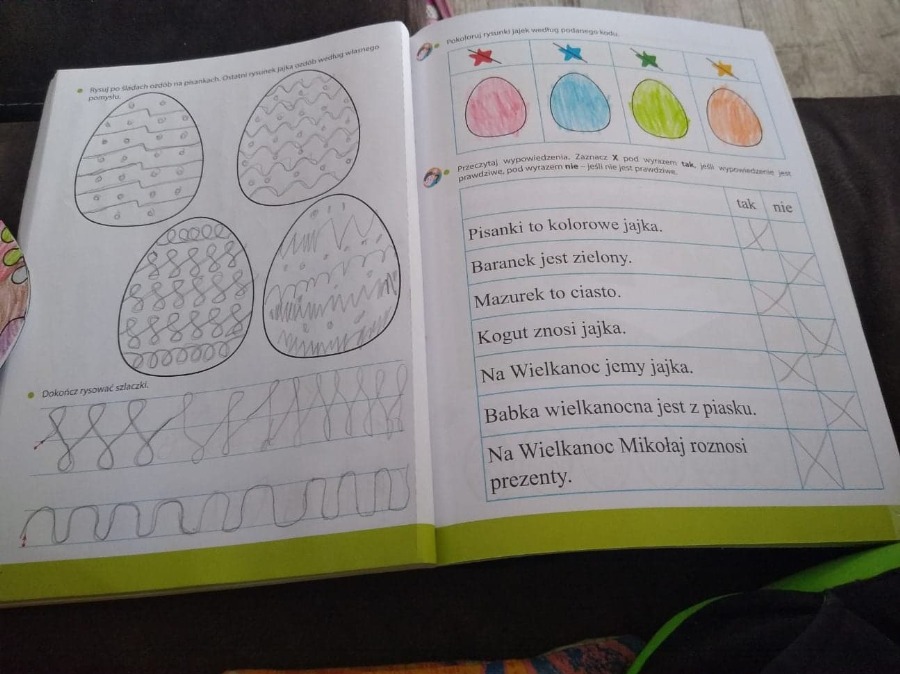 Rysuj po śladach ozdób na pisankach. Ostatni rysunek jajka ozdób według własnego
pomysłu.
Dokończ rysować szlaczki.
Pokoloruj rysunki jajek według podanego kodu.
Przeczytaj wypowiedzenia. Zaznacz X pod wyrazem tak, jeśli wypowiedzenie jest
prawdziwe, pod wyrazem nie – jeśli nie jest prawdziwe.
tak nie
Pisanki to kolorowe jajka.
Baranek jest zielony.
Mazurek to ciasto.
Kogut znosi jajka.
Na Wielkanoc jemy jajka.
Babka wielkanocna jest z piasku.
Na Wielkanoc Mikołaj roznosi
prezenty.